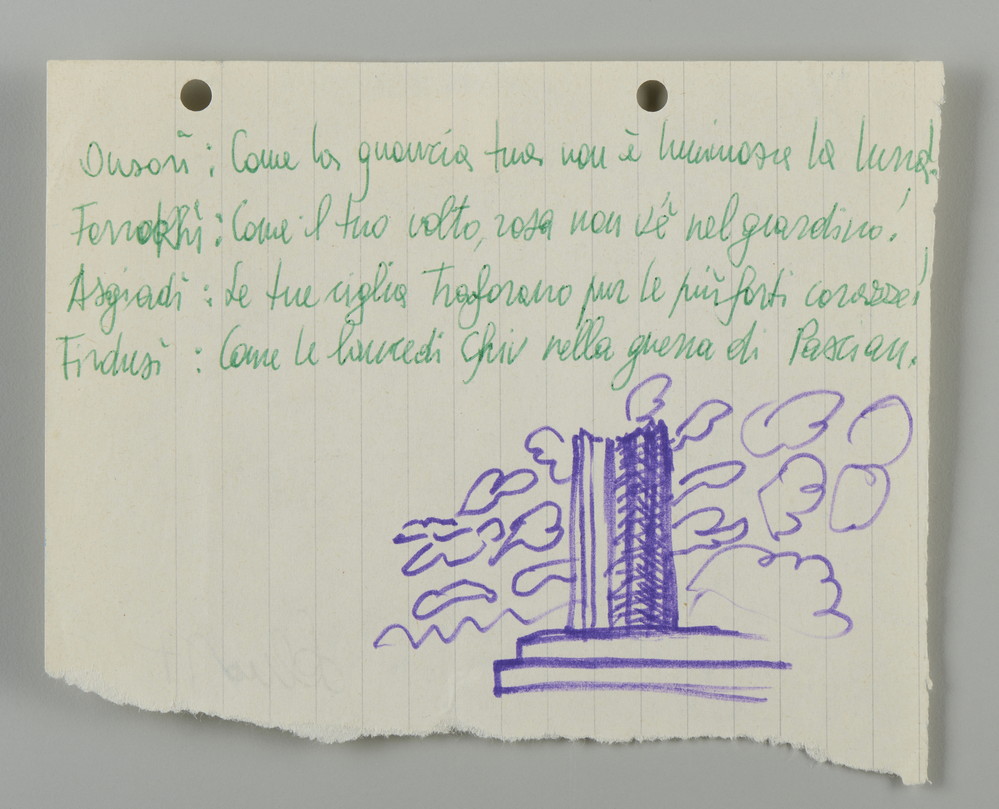 Onsorì: Come la guancia tua non è luminosa la luna!
Ferrokhì: Come il tuo volto, rosa non v'è nel giardino!
Asgiadì: Le tue ciglia trasforano pur le più forti corazze!
Firdusì: Come le lance di Ghiv nella guerra di Pascian.